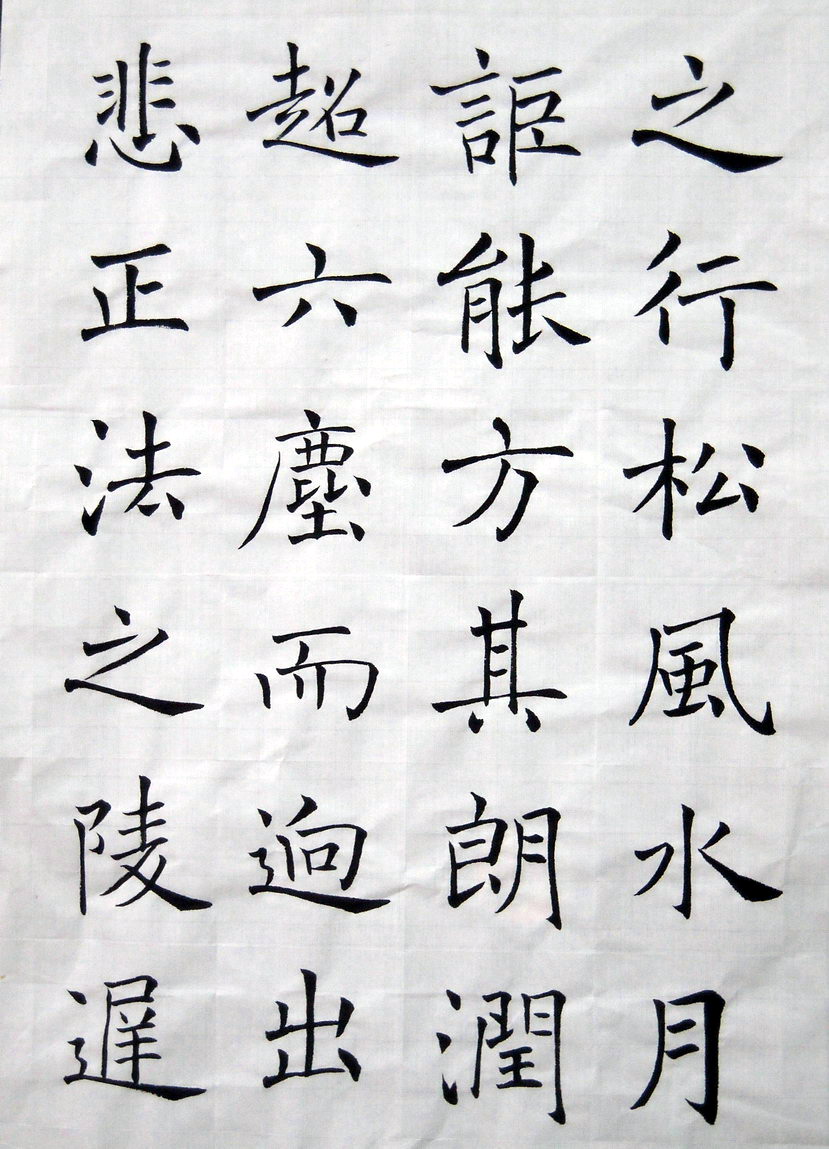 之行松風水月
詎能方其朗潤
超六塵而迥出
悲正法之陵遲